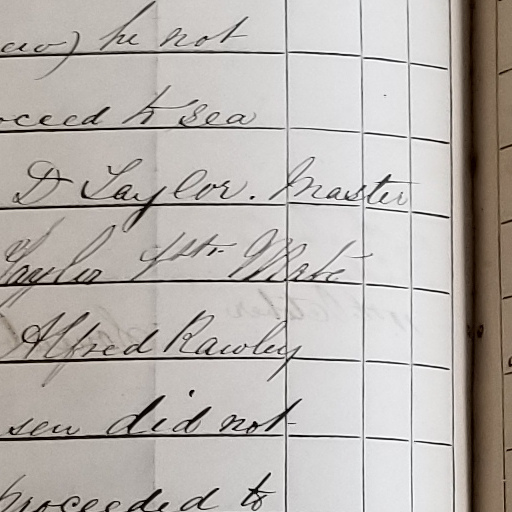 he not
to sea
D Taylor. Master
Taylor 1st Mate
Alfred Rawley
did not
proceeded to